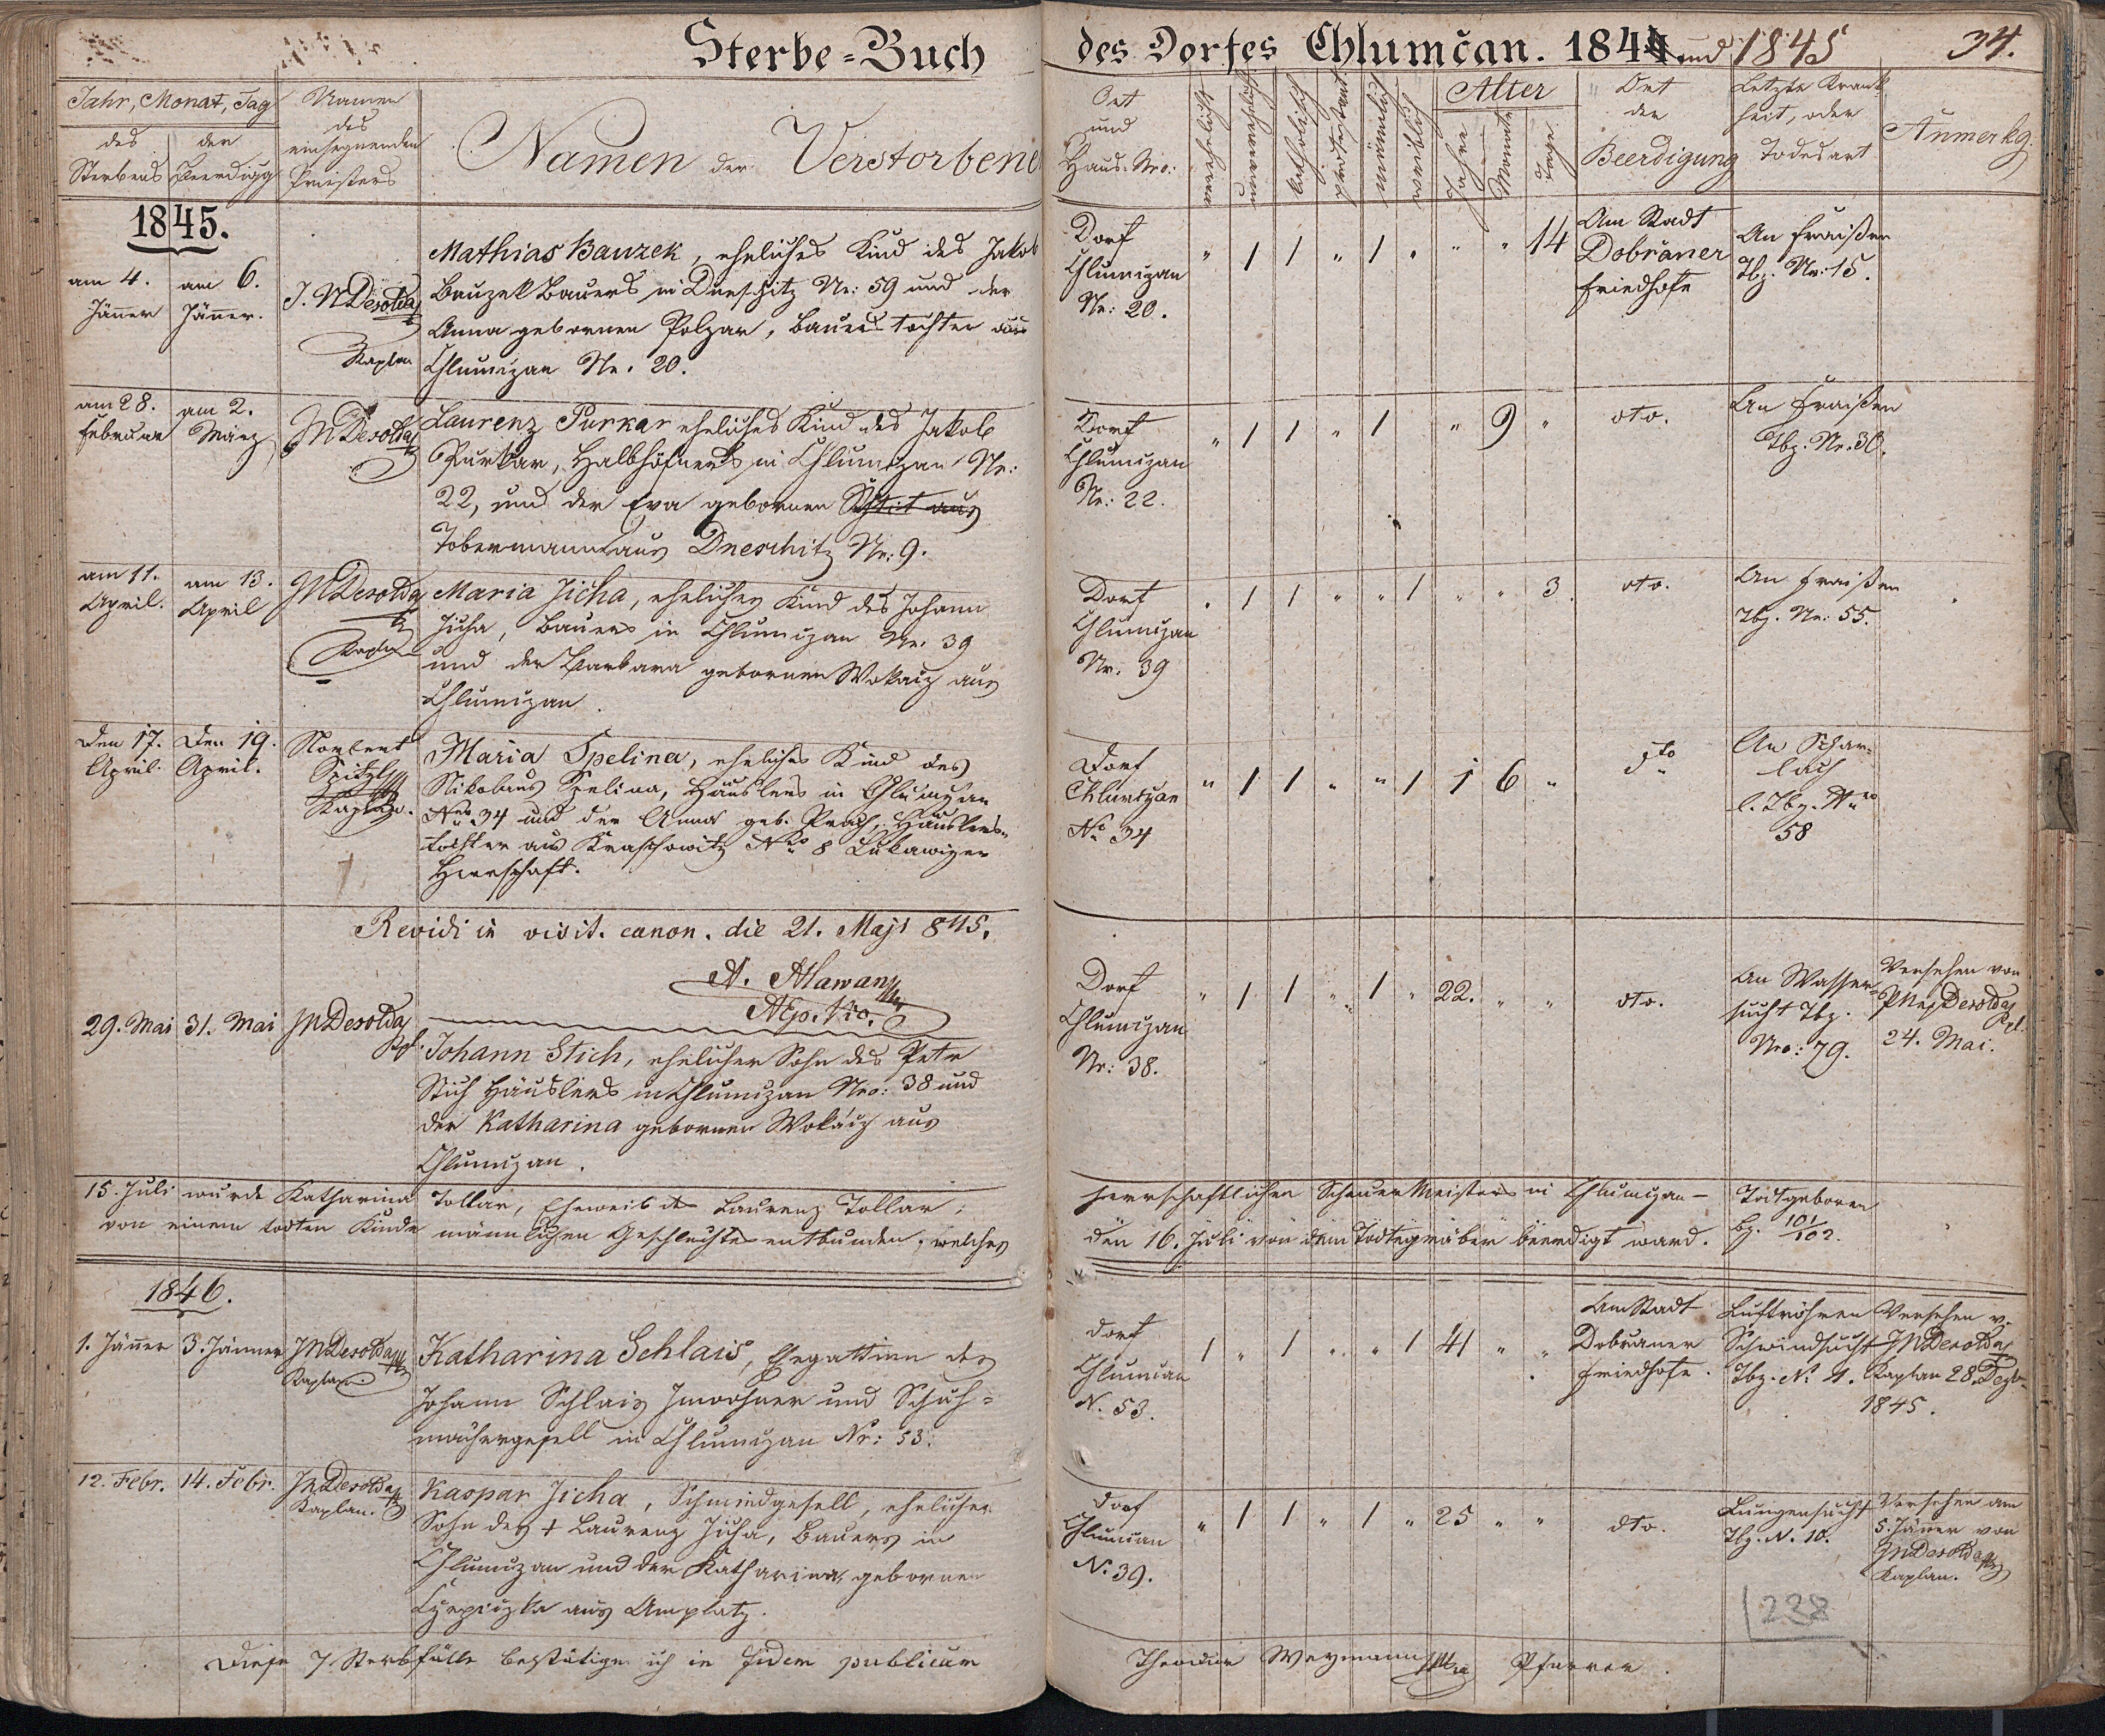 Sterbe-Buch des Dorfes Chlumčan. 1844 und 1845 34.
Jahr, Monat, Tag
des Sterbens
der Beerdigg
Namen des einsegnenden Priesters
Namen der Verstorbene
Ort und Haus-Nro:
verehelicht
unverehelicht
katholisch
protestant
männlich
weiblich
Alter
Jahre
Monate
Tage
Ort der Beerdigung
Letzte Krankheit, oder Todesart
Anmerkg.
1845.
am 4. Jänner
am 6. Jänner.
J. N Desolda
Kaplan
Mathias Bauzek, eheliches Kind des Jakob
Bauzek Bauers in Dneschitz Nr: 59 und der
Anna gebornen Polzar, Bauerstochter aus
Chlumczan Nr. 20.
Dorf
Chlumczan
Nr: 20.
" 1 1 " 1 " " " 14
Am Stadt
Dobřaner
Friedhofe
An Fraißen
Tbz. Nr: 15.
am 28. Februar
am 2. März
JN Desolda
Laurenz Purkar eheliches Kind des Jakob
Purkar, Halbhöfners in Chlumczan Nr:
22, und der Eva gebornen
Tobermann aus Dneschitz Nr: 9.
Dorf
Chlumczan
Nr: 22.
" 1 1 " 1 " 9 "
dto.
An Fraißen
Tbz. Nr. 30.
am 11. April.
am 13. April
JN Desolda
Kaplan
Maria Jicha, eheliches Kind des Johann
Jicha, Bauers in Chlumczan Nr. 39
und der Barbara gebornen Wokacz aus
Chlumczan.
Dorf
Chlumczan
Nr. 39
" 1 1 " " 1 " " 3
dto.
An Fraißen
Tbz. Nr: 55.
Den 17. April.
Den 19. April.
Norbert
Spitzl
Kaplan.
Maria Spelina, eheliches Kind des
Nikolaus Spelina, Häuslers in Chlumczan
Nro 34 und der Anna geb. Prach, Häuslers-
tochter aus Kraschowitz Nro 8 Lukawizer
Herrschaft.
Dorf
Chlumczan
No 34
" 1 1 " " 1 1 6 "
dto
An Schar-
lach
l. Tbz. Nro
58
Revidi in visit. canon. die 21. Maji 845.
29. Mai
31. Mai
JN Desolda
Kpl.
Johann Stich, ehelicher Sohn des Petr
Stich Häuslers in Chlumczan Nro: 38 und
der Katharina gebornen Wokácz aus
Chlumczan.
Dorf
Chlumczan
Nr: 38.
" 1 1 " 1 " 22. " "
dto.
An Wasser-
sucht Tbz.
Nro: 79.
Versehen von
JN Desolda
Kpl.
24. Mai.
15. Juli wurde Katharina Tollar, Eheweib des Laurenz Tollar, herrschaftlichen Scheuer Meisters in Chlumczan –
von einem todten Kinde männlichen Geschlechtes entbunden, welches den 16. Juli von dem Todtengräber beerdigt ward.
Todtgeboren
101/102.
1846.
1. Jänner
3. Jänner
JN Desolda
Kaplan
Katharina Schlais, Ehegattinn des
Johann Schlais Inwohner und Schuh-
machergesell in Chlumczan Nr: 53.
Dorf
Chlumčan
N. 53.
1 " 1 " " 1 41 " "
Am Stadt
Dobřaner
Friedhofe.
Luftröhren
Schwindsucht
Tbz. N. 1.
Versehen v.
JN Desolda
Kaplan 28. Dezbr.
1845.
12. Febr.
14. Febr.
JN Desolda
Kaplan.
Kaspar Jicha, Schmiedgesell, ehelicher
Sohn des + Laurenz Jicha, Bauers in
Chlumczan und der Katharina, gebornen
aus Amplatz.
Dorf
Chlumčan
N. 39.
" 1 1 " 1 " 25 " "
dto.
Lungensucht
Tbz. N. 10.
Versehen am
5. Jänner von
JN Desolda
Kaplan.
238
Diese 7 Sterbfälle bestätige ich in fidem publicam
Theodor Weymann Pfarrer.